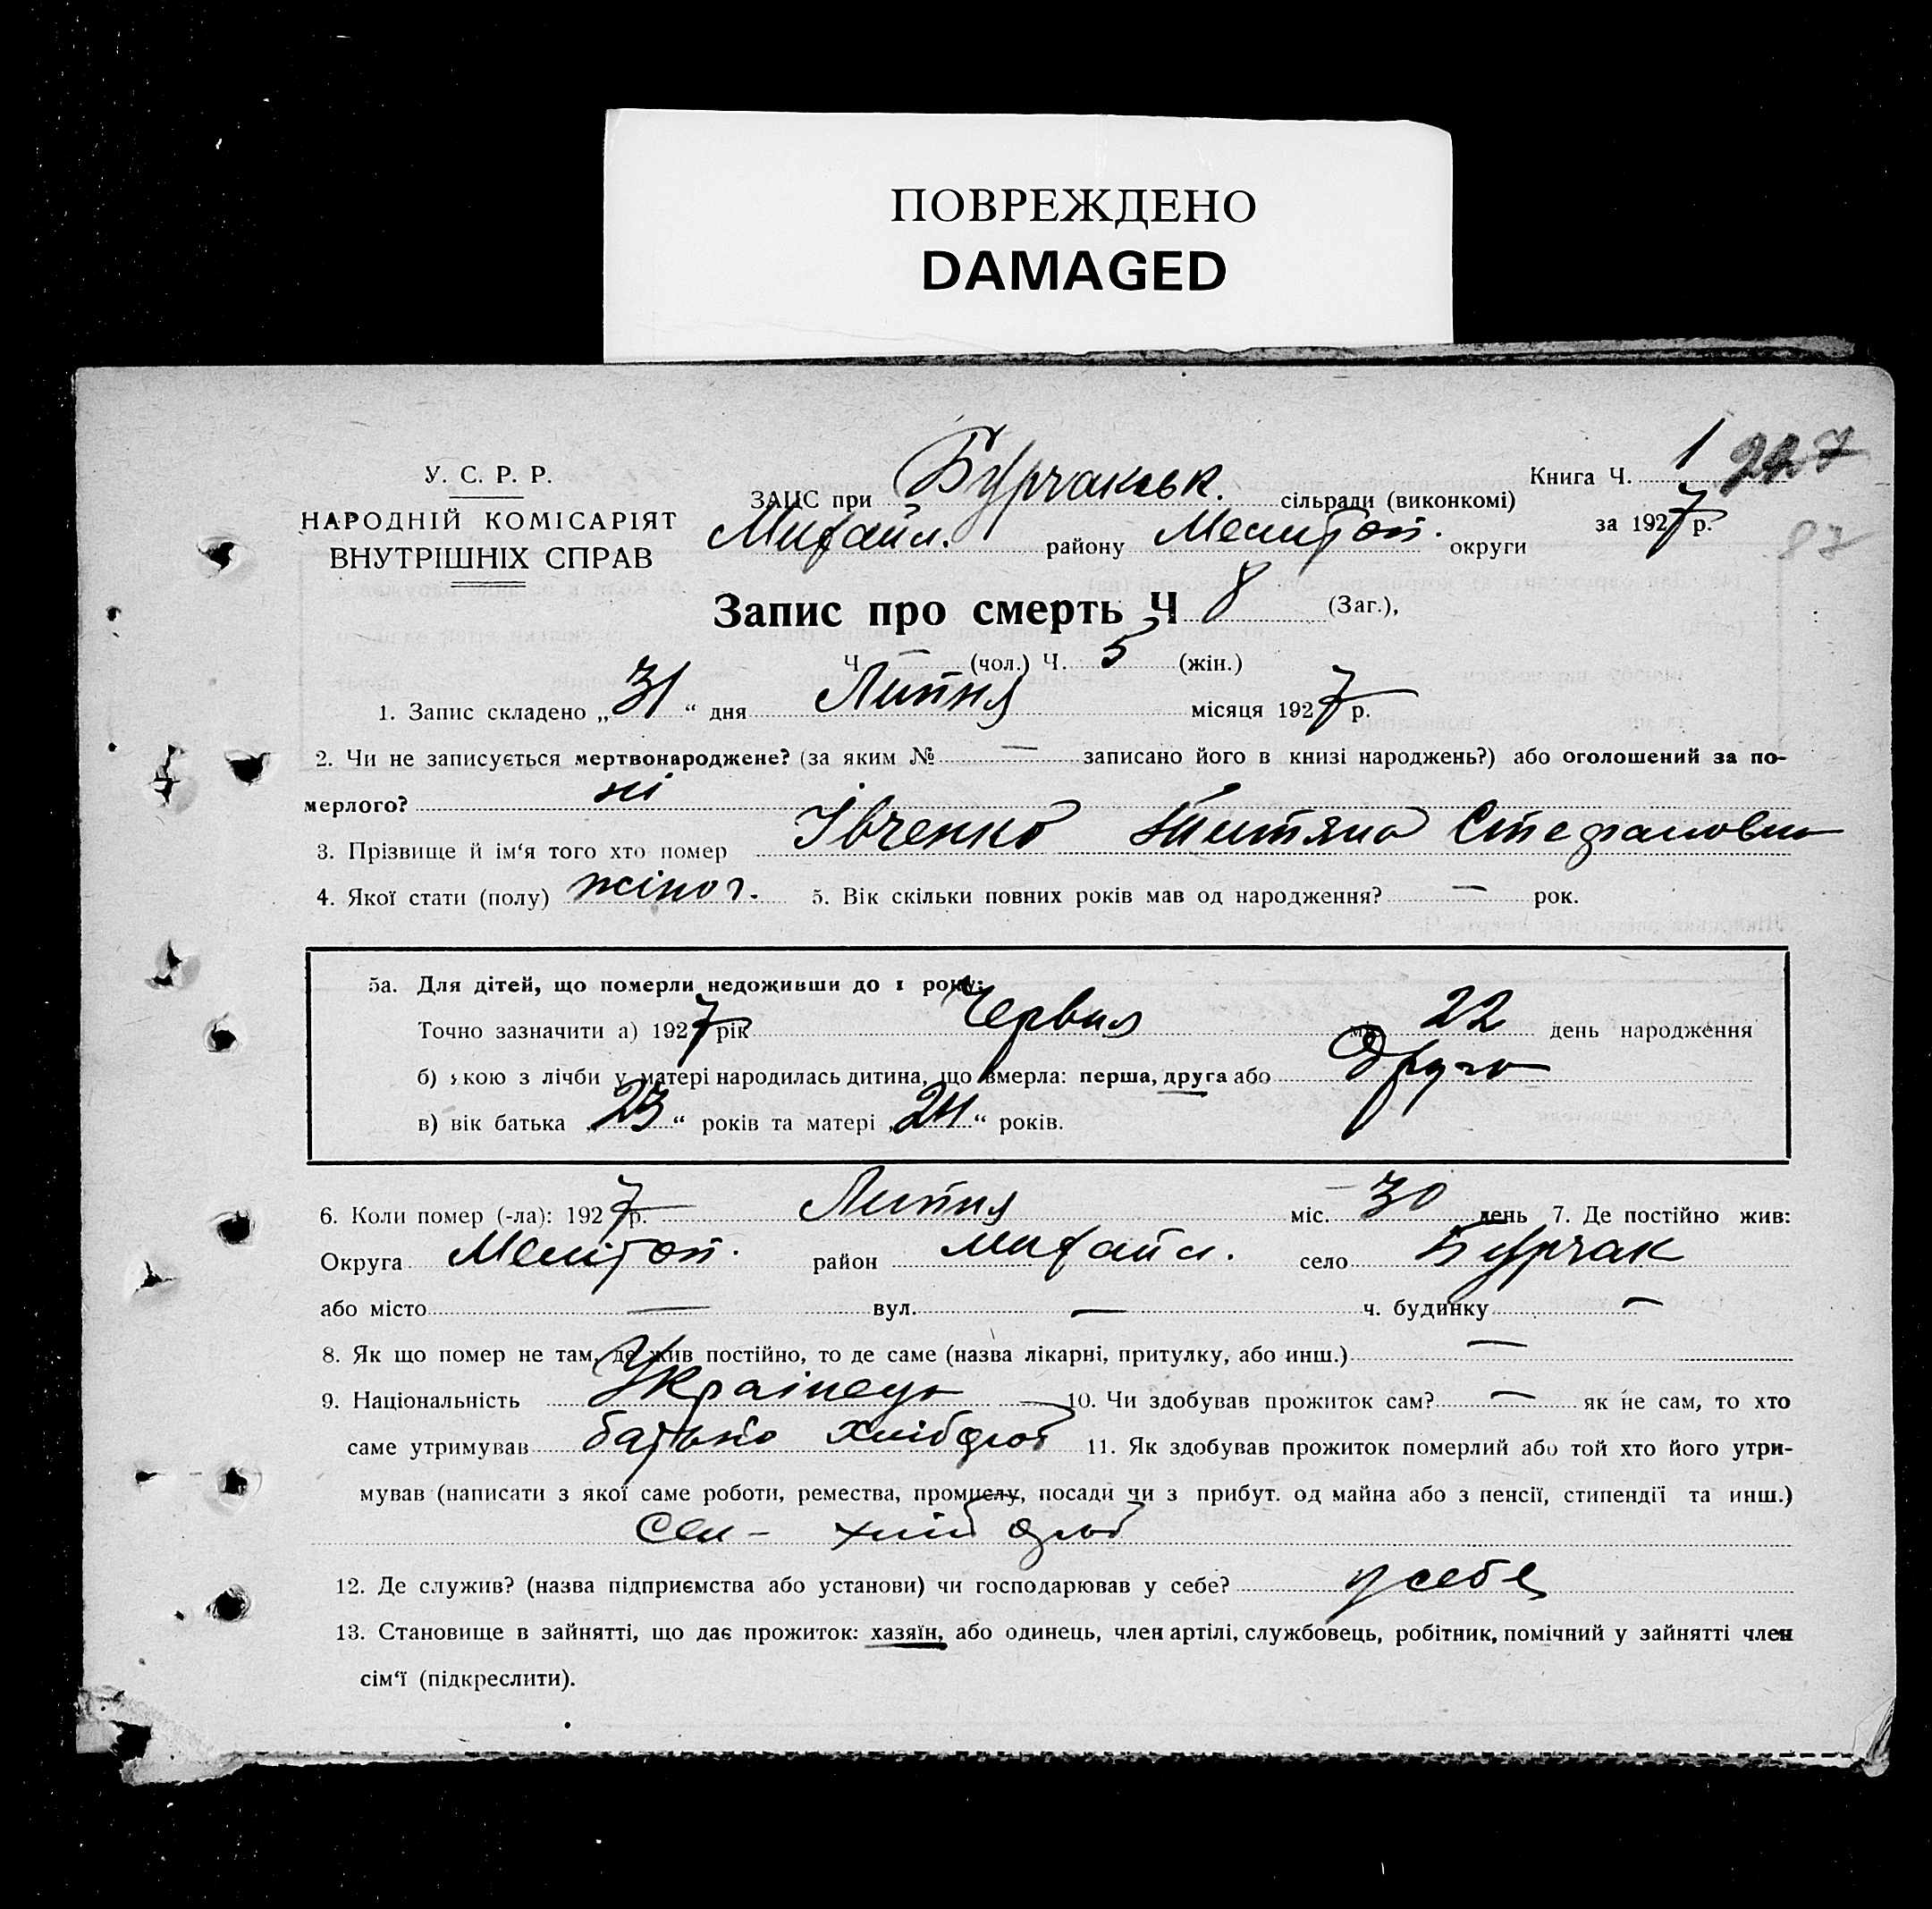 ПОВРЕЖДЕНО
DAMAGED
У. С. Р. Р.
НАРОДНІЙ КОМІСАРІЯТ
ВНУТРІШНІХ СПРАВ
ЗАЦС при Бурчакськ. сільради (виконкомі)
Михайл. району Мелітоп. округи
Книга Ч. 1 227
за 1927 р.
87
Запис про смерть Ч 8 (Заг.),
Ч — (чол.) Ч. 5 (жін.)
1. Запис складено „31“ дня Липня місяця 1927 р.
2. Чи не записується мертвонароджене? (за яким № — записано його в книзі народжень?) або оголошений за по-
мерлого? ні
3. Прізвище й ім‘я того хто помер Івченко Титяна Стефановна
4. Якої стати (полу) жіноч. 5. Вік скільки повних років мав од народження? — рок.
5а. Для дітей, що померли недоживши до 1 року:
Точно зазначити а) 1927 рік Червня міс. 22 день народження
б) якою з лічби у матері народилась дитина, що вмерла: перша, друга або друга
в) вік батька „23“ років та матері „24“ років.
6. Коли помер (-ла): 1927 р. Липня міс. 30 день 7. Де постійно жив:
Округа Мелітоп. район Михайл. село Бурчак
або місто — вул. — ч. будинку —
8. Як що помер не там, де жив постійно, то де саме (назва лікарні, притулку, або инш.) —
9. Національність Українець 10. Чи здобував прожиток сам? — як не сам, то хто
саме утримував батько хлібороб 11. Як здобував прожиток померлий або той хто його утри-
мував (написати з якої саме роботи, ремества, промислу, посади чи з прибут. од майна або з пенсії, стипендії та инш.)
Сел- хлібороб
12. Де служив? (назва підприємства або установи) чи господарював у себе? у себе
13. Становище в зайнятті, що дає прожиток: хазяїн, або одинець, член артілі, службовець, робітник, помічний у зайнятті член
сім‘ї (підкреслити).